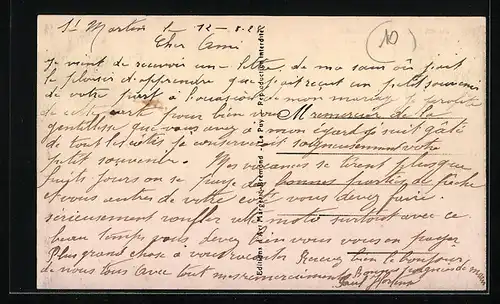 St Martin le 12-8-28
Cher Ami
je vient de recevoir une lettre de ma sœur où j'ait
le plaisir d'apprendre que j'ait reçut un petit souvenir
de votre part à l'occasion de mon mariage je profite
de cette carte pour bien vous Mremercier de la
gentillesse que vous avez à mon égard je suit gâté
de tout les cotés je conserverait soigneusement votre
petit souvenir. Mes vacances se tirent plus que
huits jours on se paye de bonnes parties de pêche
et vous autres de votre coté vous devez faire
serieusement ronfler votre moto surtout avec ce
beau temps vous devez bien vous vous en payer
Plus grand chose à vous raconter Recevez bien le bonjour
de nous tous avec tout mes remerciements Bonnes poignées de main
Paul
10
Editions d'Art Margerit-Brémond - Le Puy - Reproduction interdite